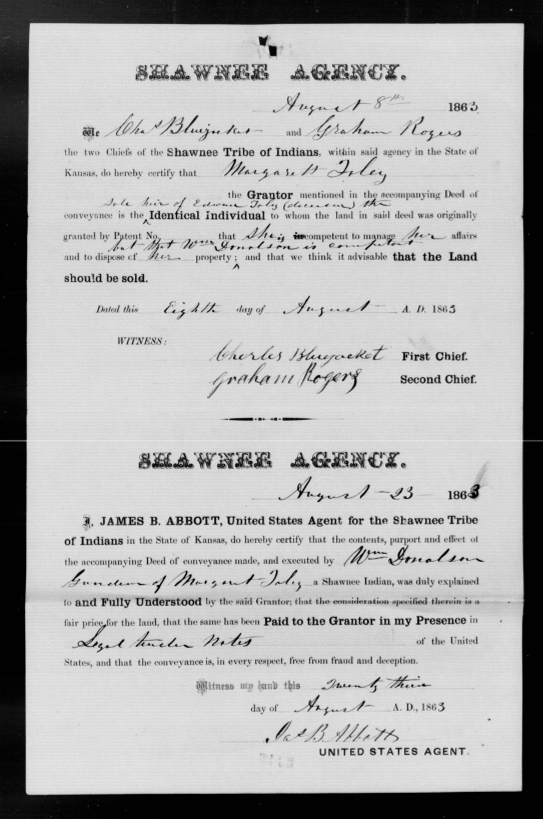 SHAWNEE AGENCY.
August 8th 1863
We Chas Bluejacket and Graham Rogers
the two Chiefs of the Shawnee Tribe of Indians, within said agency in the State of
Kansas, do hereby certify that Margarett Foley
the Grantor mentioned in the accompanying Deed of
Sole heir of Edward Foley (deceased) the
conveyance is the Identical Individual to whom the land in said deed was originally
granted by Patent No. that she is incompetent to manage her affairs
but that Wm Donalson is competent
and to dispose of her property; and that we think it advisable that the Land
should be sold.
Dated this Eighth day of August A. D. 1863
WITNESS:
Charles Bluejacket First Chief.
Graham Rogers Second Chief.
SHAWNEE AGENCY.
August 23 1863
I, JAMES B. ABBOTT, United States Agent for the Shawnee Tribe
of Indians in the State of Kansas, do hereby certify that the contents, purport and effect of
the accompanying Deed of conveyance made, and executed by Wm Donalson
Guardian of Margaret Foley a Shawnee Indian, was duly explained
to and Fully Understood by the said Grantor; that the consideration specified therein is a
fair price for the land, that the same has been Paid to the Grantor in my Presence in
Legal tender Notes of the United
States, and that the conveyance is, in every respect, free from fraud and deception.
Witness my hand this Twenty third
day of August A. D., 1863
Jas B Abbott
UNITED STATES AGENT.